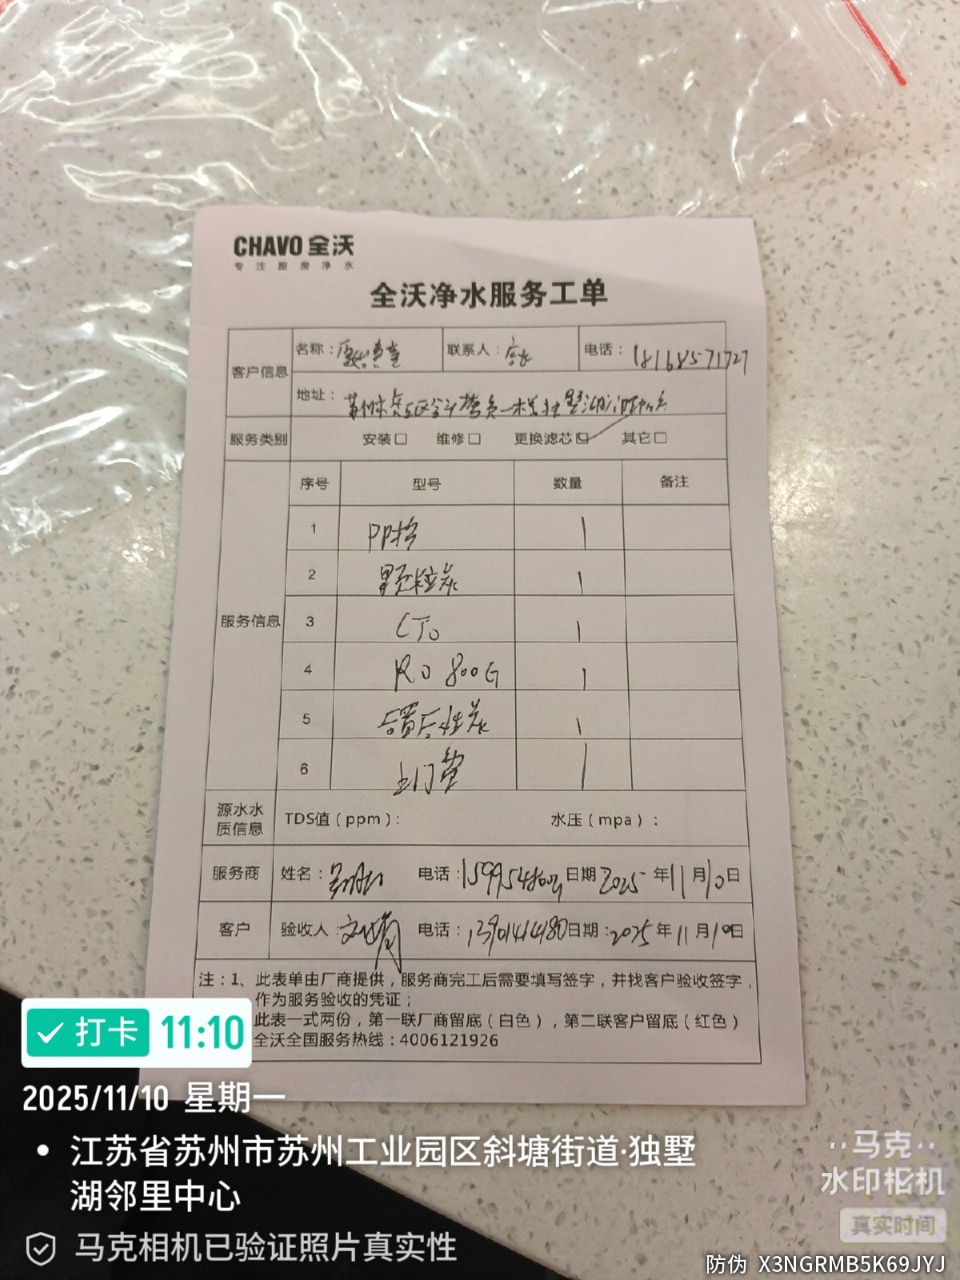 CHAVO 全沃
专注厨房净水
全沃净水服务工单
客户信息 名称： 联系人：店长 电话：18168571727
地址：
服务类别 安装□ 维修□ 更换滤芯☑ 其它□
服务信息 序号 型号 数量 备注
1 PP棉 1
2 颗粒炭 1
3 CTO 1
4 RO 800G 1
5 1
6 1
源水水质信息 TDS值（ppm）： 水压（mpa）：
服务商 姓名： 电话： 日期 2025 年 11 月 10 日
客户 验收人： 电话： 日期：2025 年 11 月 10 日
注：1、此表单由厂商提供，服务商完工后需要填写签字，并找客户验收签字，
作为服务验收的凭证；
此表一式两份，第一联厂商留底（白色），第二联客户留底（红色）
全沃全国服务热线：4006121926
打卡 11:10
2025/11/10 星期一
江苏省苏州市苏州工业园区斜塘街道·独墅
湖邻里中心
马克相机已验证照片真实性
马克
水印相机
真实时间
防伪 X3NGRMB5K69JYJ